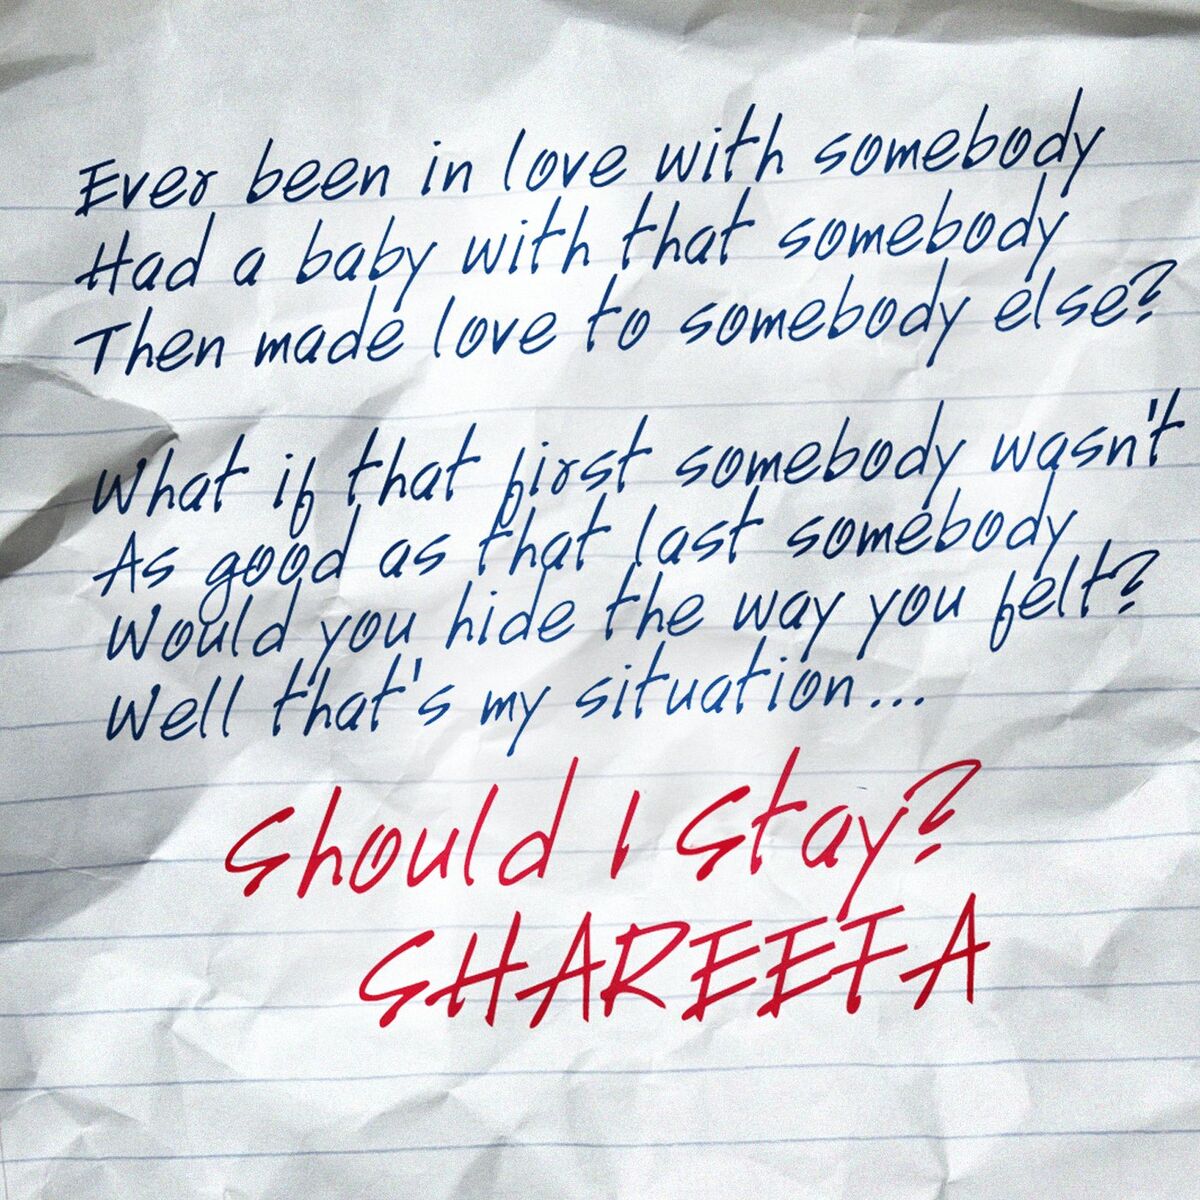 Ever been in love with somebody
Had a baby with that somebody
Then made love to somebody else?
What if that first somebody wasn't
As good as that last somebody
Would you hide the way you felt?
Well that's my situation...
Should I Stay?
SHAREEFA